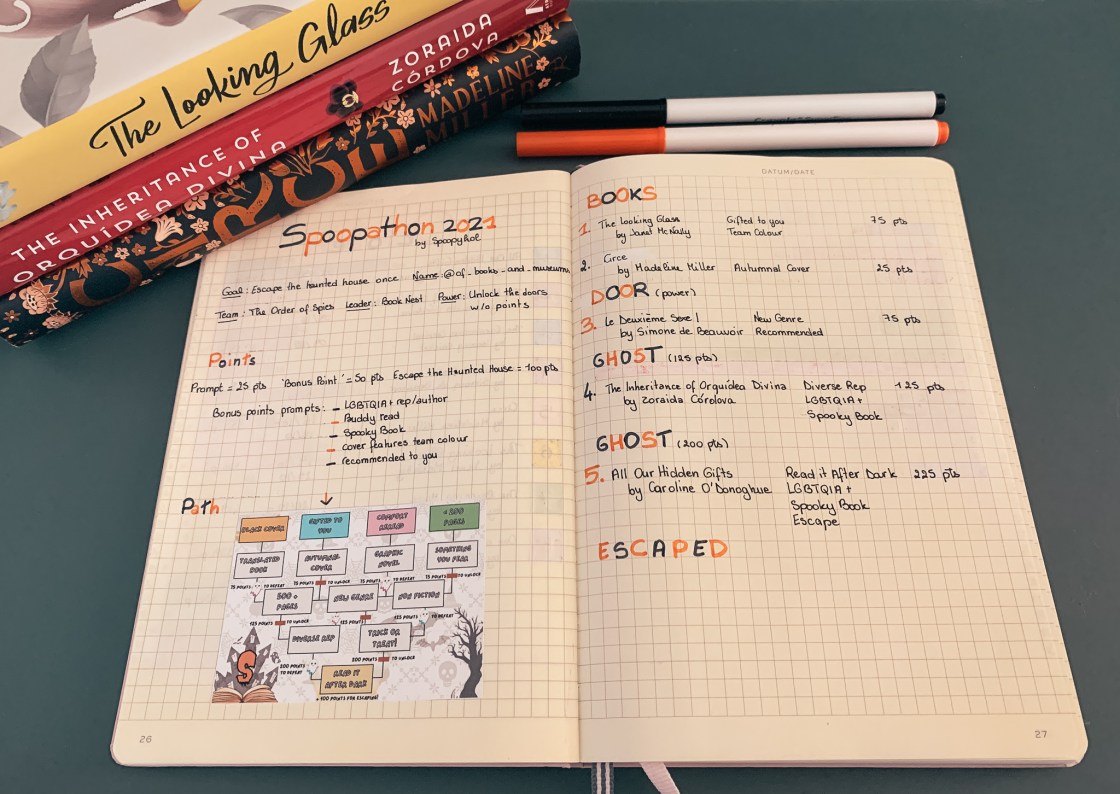 The Looking Glass
ZORAIDA
CÓRDOVA
THE INHERITANCE OF
ORQUÍDEA DIVINA
MADELINE
MILLER
Spoopathon 2021
by SpoopyHol
Goal: Escape the haunted house once Name: @of_books_and_museums
Team: The Order of Spies Leader: Book Nest Power: Unlock the doors
w/o points
Points
Prompt = 25 pts 'Bonus Point' = 50 pts Escape the Haunted House = 100 pts
Bonus points prompts: - LGBTQIA+ rep/author
- Buddy read
- Spooky Book
- cover features team colour
- recommended to you
Path
BLACK COVER
GIFTED TO
YOU
COMFORT
REREAD
PAGES
TRANSLATED
BOOK
AUTUMNAL
COVER
GRAPHIC
NOVEL
SOMETHING
YOU FEAR
75 POINTS TO REPEAT
75 POINTS TO UNLOCK
75 POINTS TO REPEAT
75 POINTS TO UNLOCK
500 +
PAGES
NEW GENRE
NON FICTION
125 POINTS TO UNLOCK
125 POINTS
125 POINTS TO REPEAT
DIVERSE REP
TRICK OR
TREAT!
S
200 POINTS
TO REPEAT
200 POINTS TO UNLOCK
READ IT
AFTER DARK
+ 100 POINTS FOR ESCAPING!
26
DATUM/DATE
BOOKS
1. The Looking Glass Gifted to you 75 pts
by Janet McNally Team Colour
2. Circe
by Madeline Miller Autumnal Cover 25 pts
DOOR (power)
3. Le Deuxième Sexe I New Genre 75 pts
by Simone de Beauvoir Recommended
GHOST (125 pts)
4. The Inheritance of Orquídea Divina Diverse Rep 125 pts
by Zoraida Córdova LGBTQIA+
Spooky Book
GHOST (200 pts)
5. All Our Hidden Gifts Read it After Dark 225 pts
by Caroline O'Donoghue LGBTQIA+
Spooky Book
Escape
ESCAPED
27